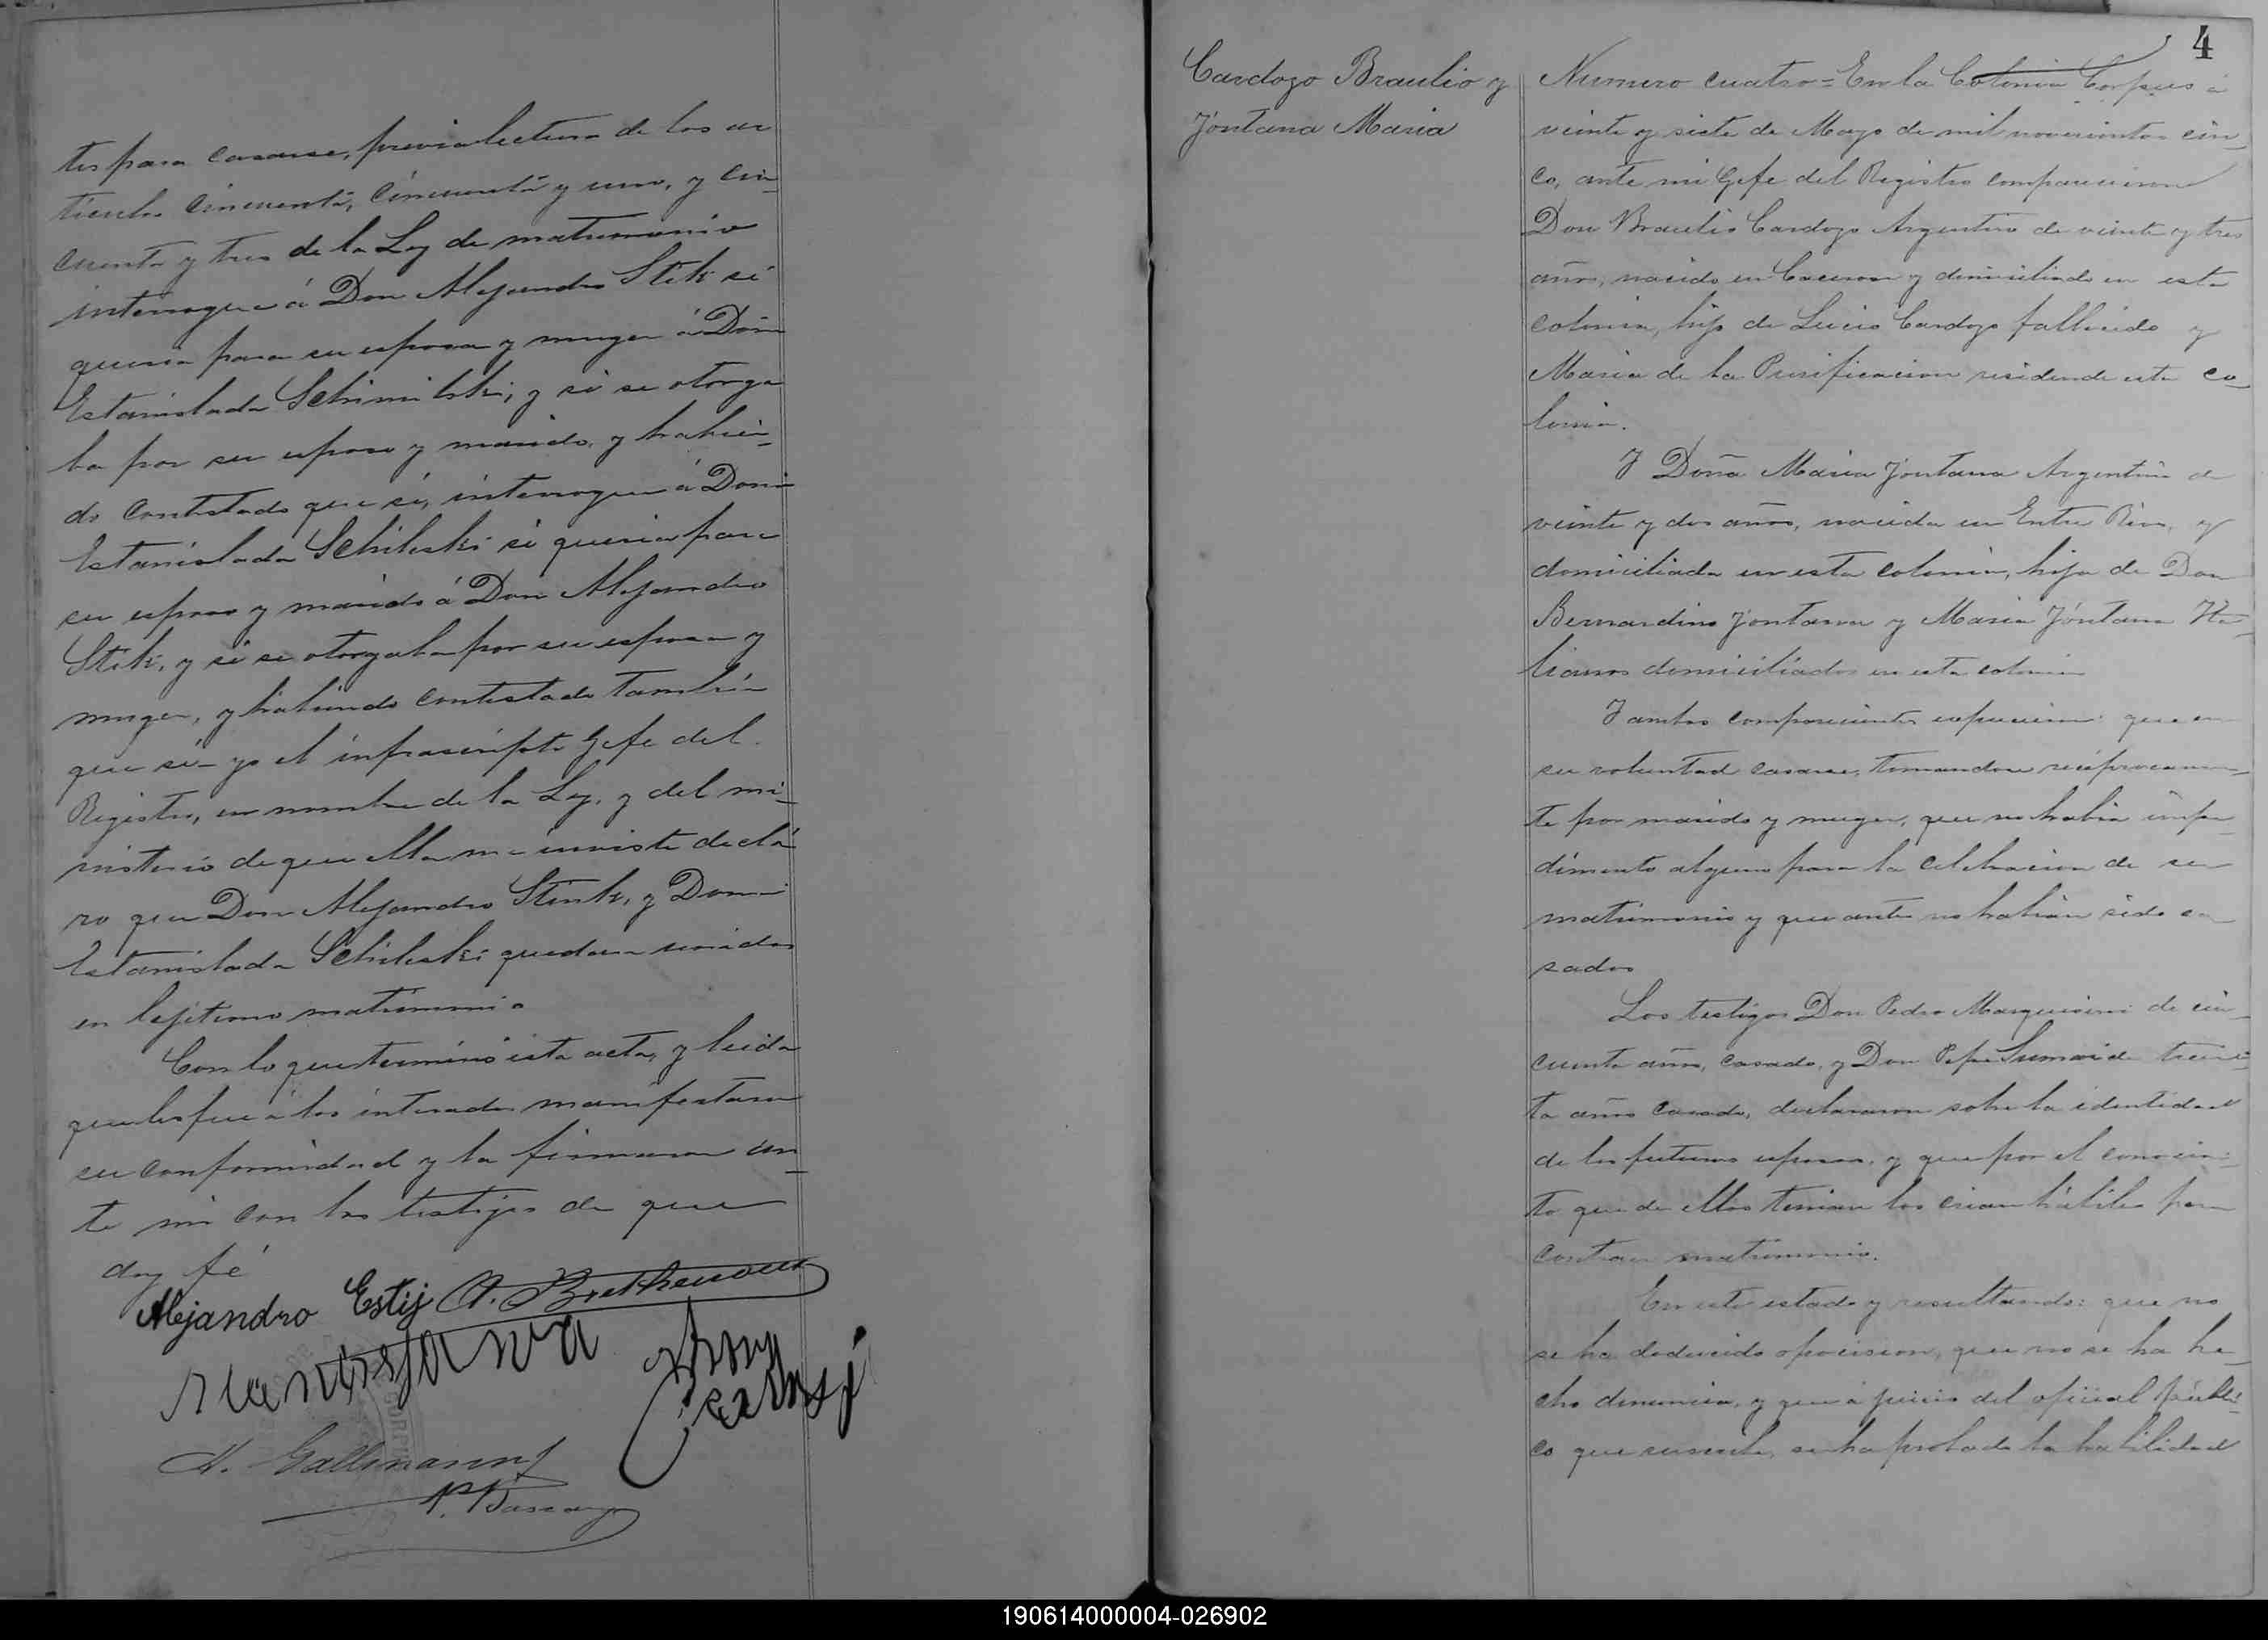 tes para casarse, previa lectura de los ar
ticulos cincuenta, cincuenta y uno, y cin_
cuenta y tres de la Ley de matrimonio
interrogue á Don Alejandro Stek si
queria para su esposa y muger á Doña
Estanislada Schimilski, y si se otorga
ba por su esposo y marido, y habien_
do contestado que si, interrogue á Doña
Estanislada Schileski si queria para
su esposo y marido á Don Alejandro
Stek, y si se otorgaba por su esposa y
muger, y habiendo contestado tambien
que si- yo el infrascripto Gefe del
Registro, en nombre de la Ley, y del mi_
nisterio de que ella me inviste decla
ro que Don Alejandro Stenk, y Doña
Estanislada Schileski quedan unidos
en lejitimo matrimonio
Con lo que terminó esta acta, y leida
que les fue á los interesados manifestaron
su conformidad y la firmaron an_
te mi con los testigos de que
doy fé
Alejandro Estij
A. Gallmann
4
Cardozo Braulio y
Jontana Maria
Numero cuatro = En la Colonia Corpus á
veinte y siete de Mayo de mil novecientos cin_
co, ante mi Gefe del Registro comparecieron
Don Braulio Cardozo Argentino de veinte y tres
años, nacido en y domiciliado en esta
colonia, hijo de Lucio Cardozo fallecido y
Maria de la Purificacion reside en esta co_
lonia.
Y Doña Maria Jontana Argentina de
veinte y dos años, nacida en Entre Rios, y
domiciliada en esta colonia, hija de Don
Bernardino Jontana y Maria Jontana Ita_
lianos domiciliados en esta colonia
Y ambos comparecientes expusieron: que era
su voluntad casarse, tomandose reciprocamen_
te por marido y muger, que no habia impe_
dimento alguno para la celebracion de su
matrimonio y que antes no habian sido ca
sados
Los testigos Don Pedro de cin_
cuenta años, casado, y Don Pepe de trein_
ta años casado, declararon sobre la identidad
de los futuros esposos, y que por el conocimi_
to que de ellos tenian los creian hábiles para
contraer matrimonio.
En este estado y resultando: que no
se ha deducido oposicion, que no se ha he_
cho denuncia, y que á juicio del oficial públi_
co que suscribe, se ha probado la habilidad
190614000004-026902